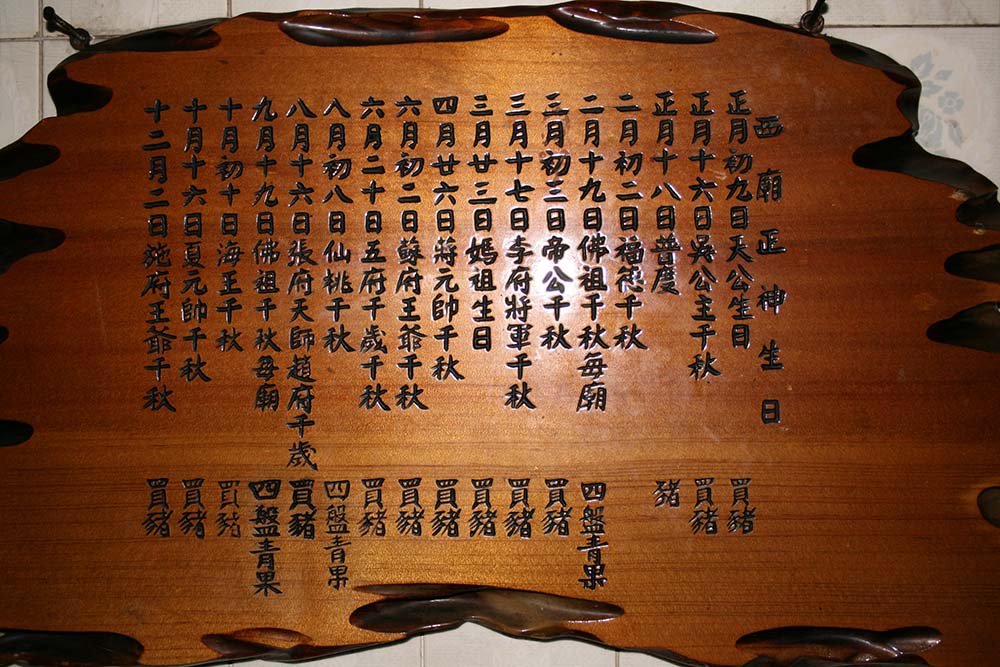 西廟正神生日
正月初九日天公生日 買豬
正月十六日吳公主千秋 買豬
正月十八日普度 豬
二月初二日福德千秋
二月十九日佛祖千秋每廟 四盤青果
三月初三日帝公千秋 買豬
三月十七日李府將軍千秋 買豬
三月廿三日媽祖生日 買豬
四月廿六日蔣元帥千秋 買豬
六月初二日蘇府王爺千秋 買豬
六月二十日五府千歲千秋 買豬
八月初八日仙桃千秋 四盤青果
八月十六日張府天師趙府千歲 買豬
九月十九日佛祖千秋每廟 四盤青果
十月初十日海王千秋 買豬
十月十六日夏元帥千秋 買豬
十二月二日施府王爺千秋 買豬